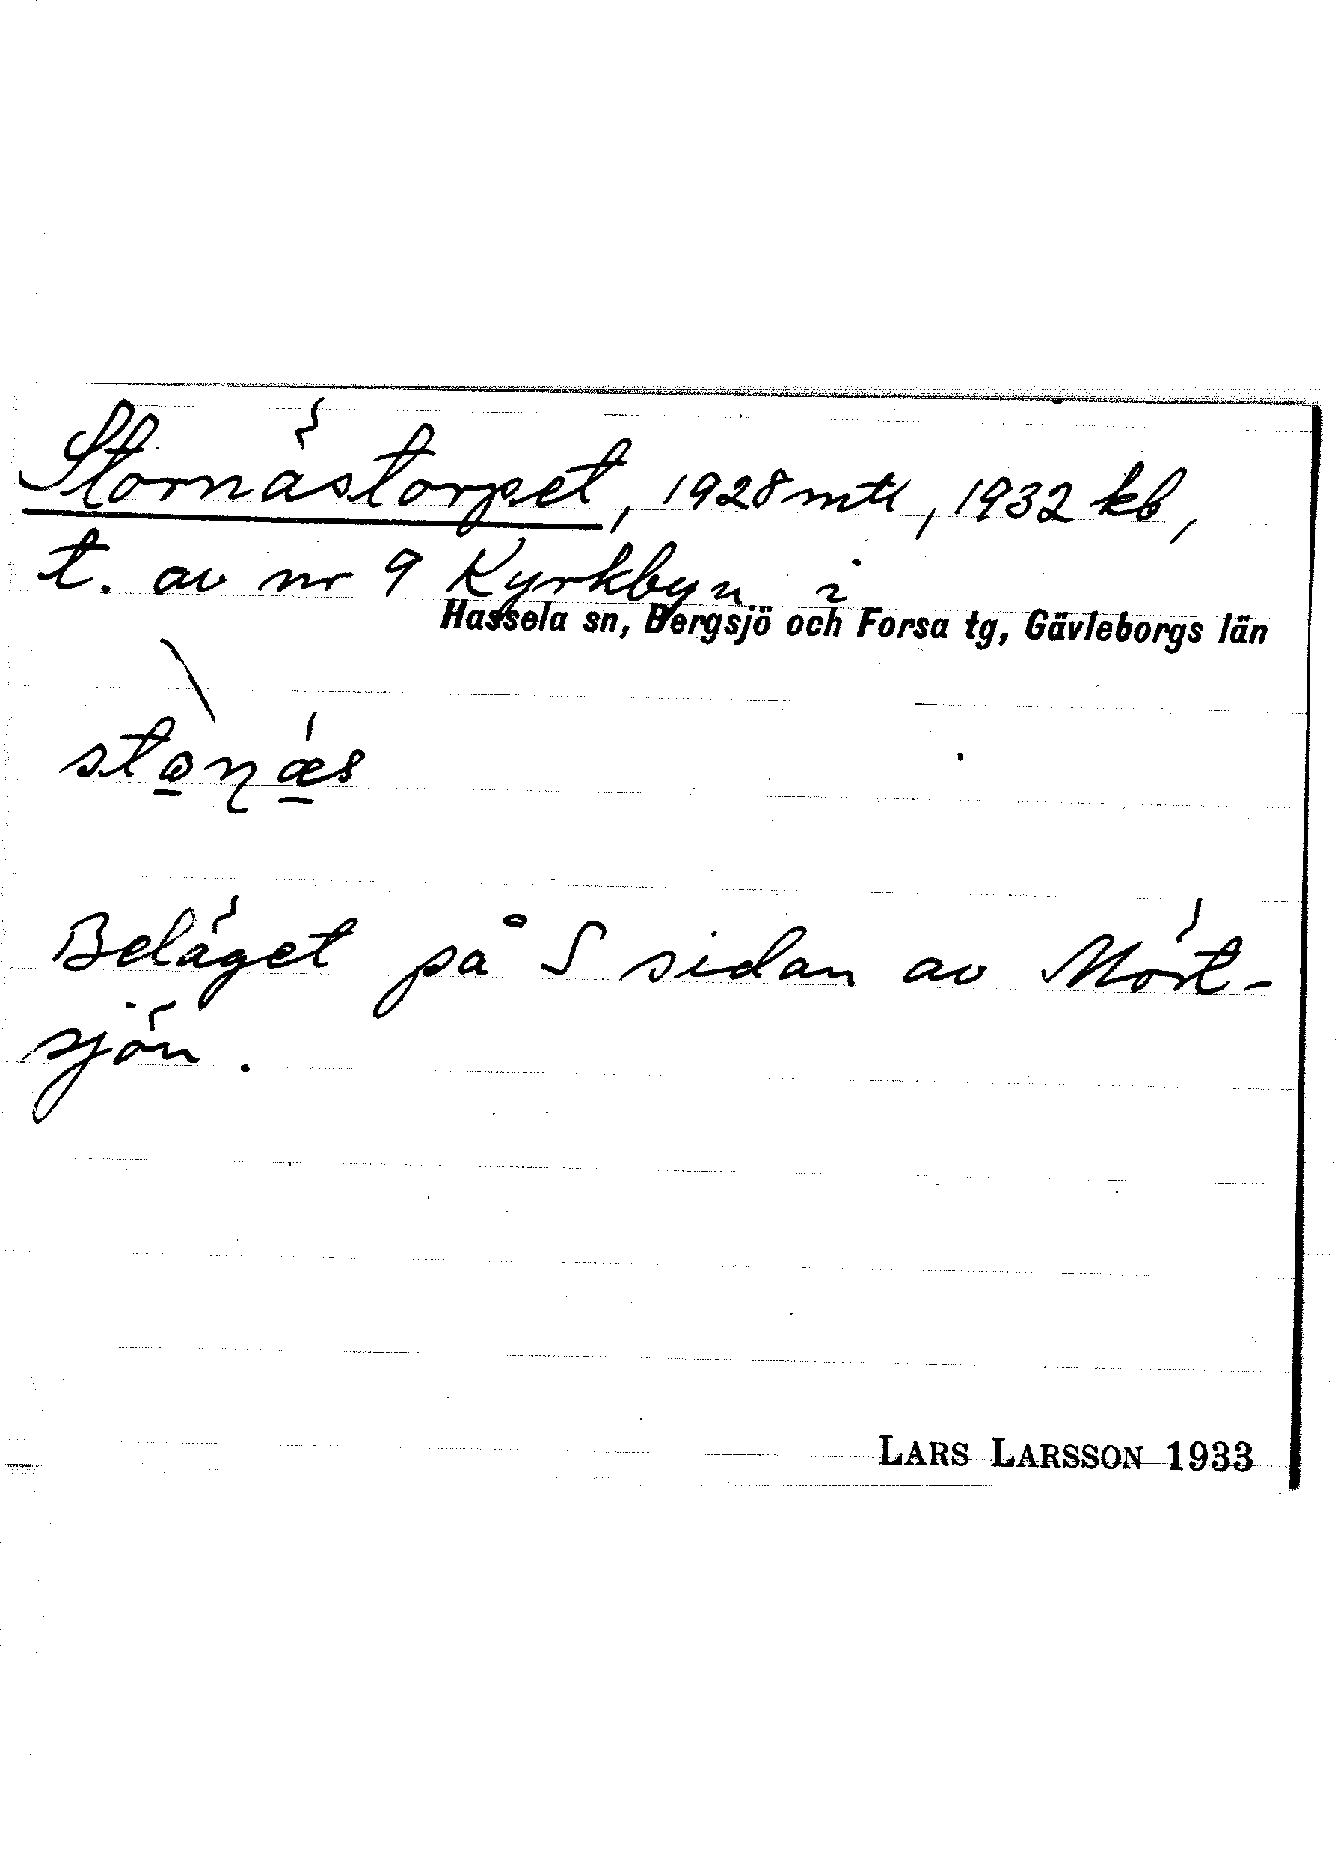 Stornästorpet, 1928 mtl, 1932 kb,
t. av nr 9 Kyrkbyn i
Hassela sn, Bergsjö och Forsa tg, Gävleborgs län
Beläget på S sidan av Mört-
sjön.
LARS LARSSON 1933